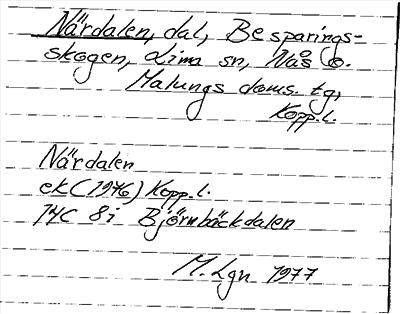 Närdalen, dal, Besparings-
skogen, Lima sn, Nås fö.
Malungs doms. tg,
Kopp.l.
Närdalen
ek (1976) Kopp.l.
14C 8i Björnbäckdalen
M. Lgn 1977